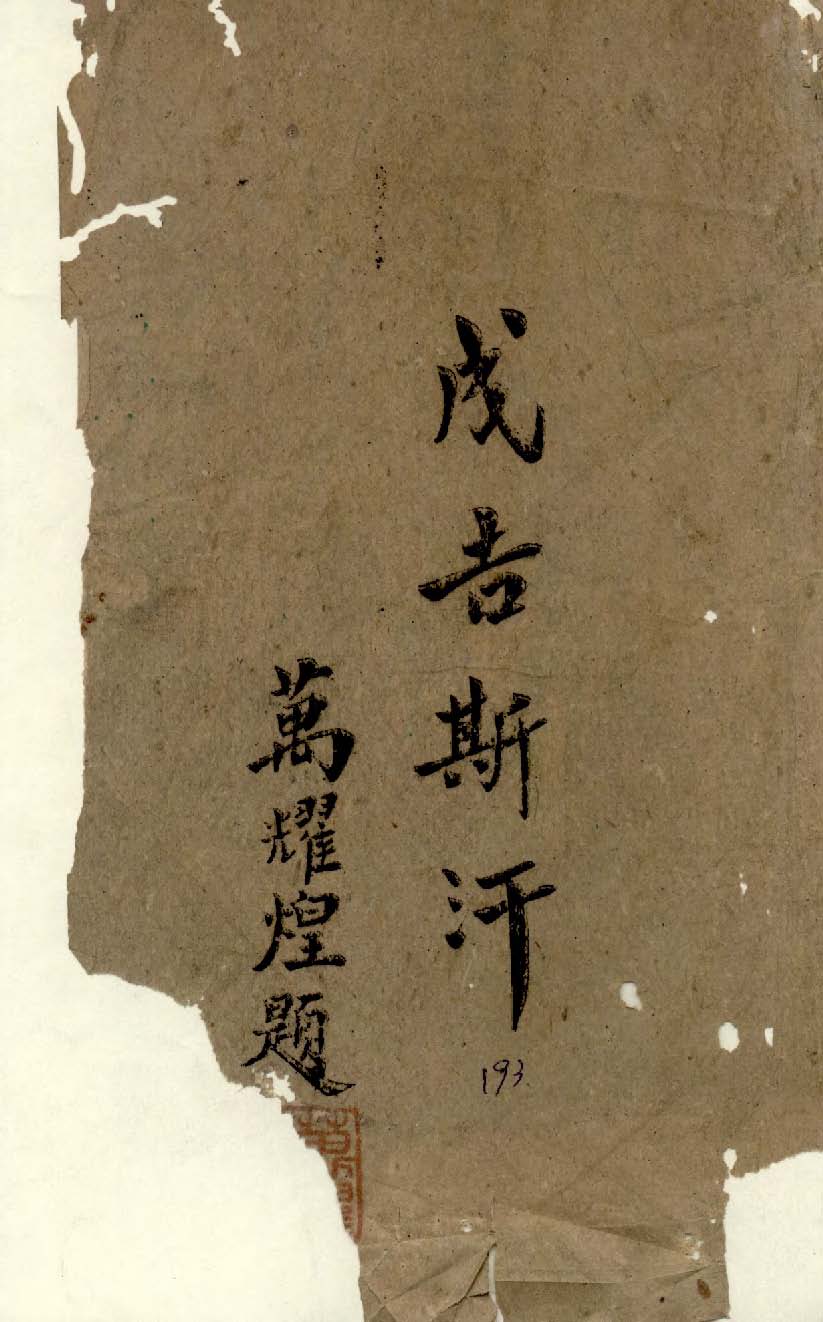 成吉斯汗
萬耀煌題
193